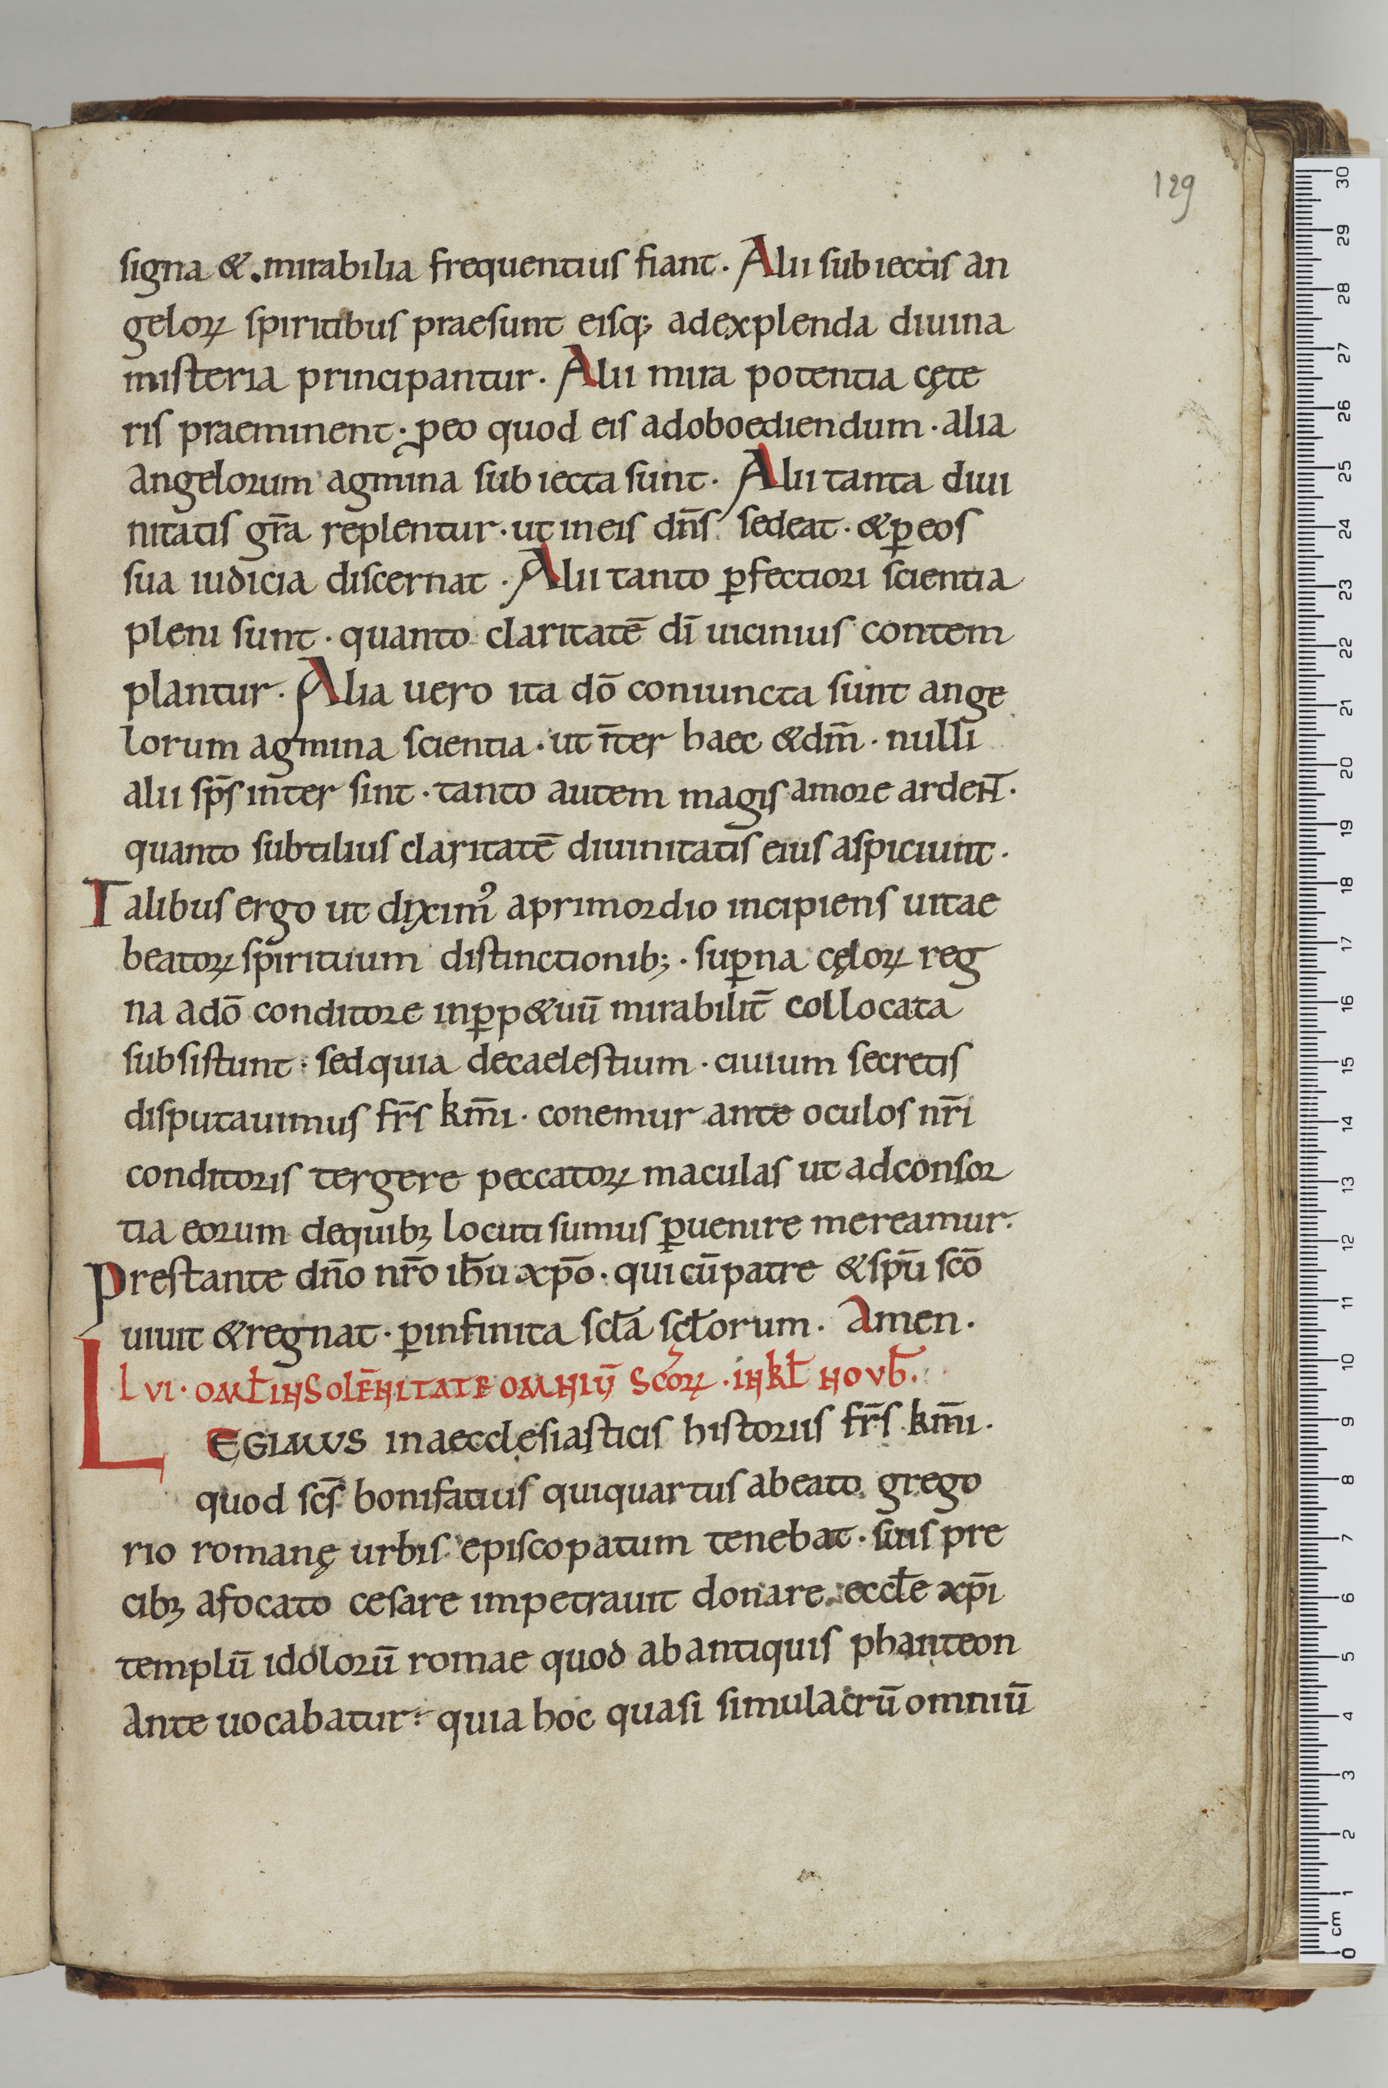 129
signa &. mirabilia frequentius fiant. Alii subiectis an
geloꝝ spiritibus praesunt eisq; adexplenda diuina
misteria principantur. Alii mira potentia cęte
ris praeminent · ꝓeo quod eis adoboediendum · alia
angelorum agmina subiecta sunt. Alii tanta diui
nitatis gr̄a replentur · ut ineis dn̄s sedeat · &ꝑeos
sua iudicia discernat · Alii tanto ꝑfectiori scientia
pleni sunt · quanto claritatē dī uicinius contem
plantur. Alia uero ita dō coniuncta sunt ange
lorum agmina scientia · ut īter haec &dm̄ · nulli
alii sp̄s inter sint · tanto autem magis amore ardeN̄T·
quanto subtilius claritatē diuinitatis eius aspiciunt.
Talibus ergo ut diximꝰ aprimordio incipiens uitae
beatoꝝ spirituum distinctionib; · suꝑna cęloꝝ reg
na adō conditore inꝑp&uū mirabilit̄ collocata
subsistunt · sedquia decaelestium · ciuium secretis
disputauimus fr̄s km̄i · conemur ante oculos nr̄i
conditoris tergere peccatoꝝ maculas ut adconsor
tia eorum dequibꝫ locuti sumus ꝑuenire mereamur.
Prestante dn̄o nr̄o ih̄u xp̄o · qui cūpatre &spū scō
uiuit &regnat · ꝑinfinita scl̄a scl̄orum. Amen.
LVI · OML̄ INSOLĒNITATE OMNIŪ SCOꝝ · INKL̄ NOVB̄.
LEGIMUS inaecclesiasticis historiis fr̄s km̄i.
quod scs̄ bonifatius quiquartus abeato grego
rio romanę urbis episcopatum tenebat · suis pre
cibꝫ afocato cesare impetrauit donare eccl̄e xp̄i
templū idolorū romae quod abantiquis phanteon
ante uocabatur · quia hoc quasi simulacrū omniū